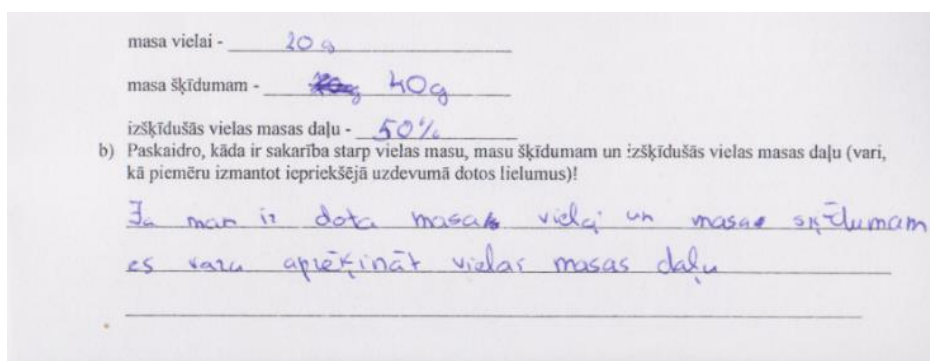 masa vielai - 20 g
masa šķīdumam - 40g
izšķīdušās vielas masas daļu - 50%
b) Paskaidro, kāda ir sakarība starp vielas masu, masu šķīdumam un izšķīdušās vielas masas daļu (vari,
kā piemēru izmantot iepriekšējā uzdevumā dotos lielumus)!
Ja man ir dota masa vielai un masa šķīdumam
es varu aprēķināt vielas masas daļu